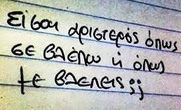 Είσαι αριστερός όπως
σε βλέπω ή όπως
με βλέπεις;;